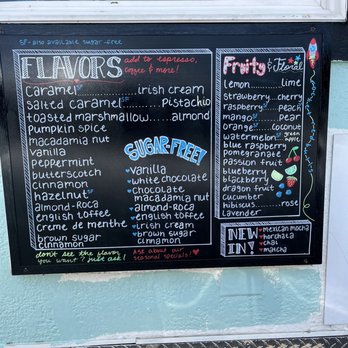 SF = also available sugar-free
FLAVORS add to espresso,
coffee & more!
caramel irish cream
salted caramel pistachio
toasted marshmallow almond
pumpkin spice
macadamia nut
vanilla
peppermint
butterscotch
cinnamon
hazelnut
almond-roca
english toffee
creme de menthe
brown sugar
cinnamon
SUGAR FREE!
vanilla
white chocolate
chocolate
macadamia nut
almond-Roca
english toffee
irish cream
brown sugar
cinnamon
don't see the flavor
you want? just ask!
Ask about our
seasonal specials!
Fruity & Floral
lemon lime
strawberry cherry
raspberry peach
mango pear
orange coconut
watermelon green apple
blue raspberry
pomegranate
passion fruit
blueberry
blackberry
dragon fruit
cucumber
hibiscus rose
lavender
NEW IN!
mexican mocha
horchata
chai
matcha